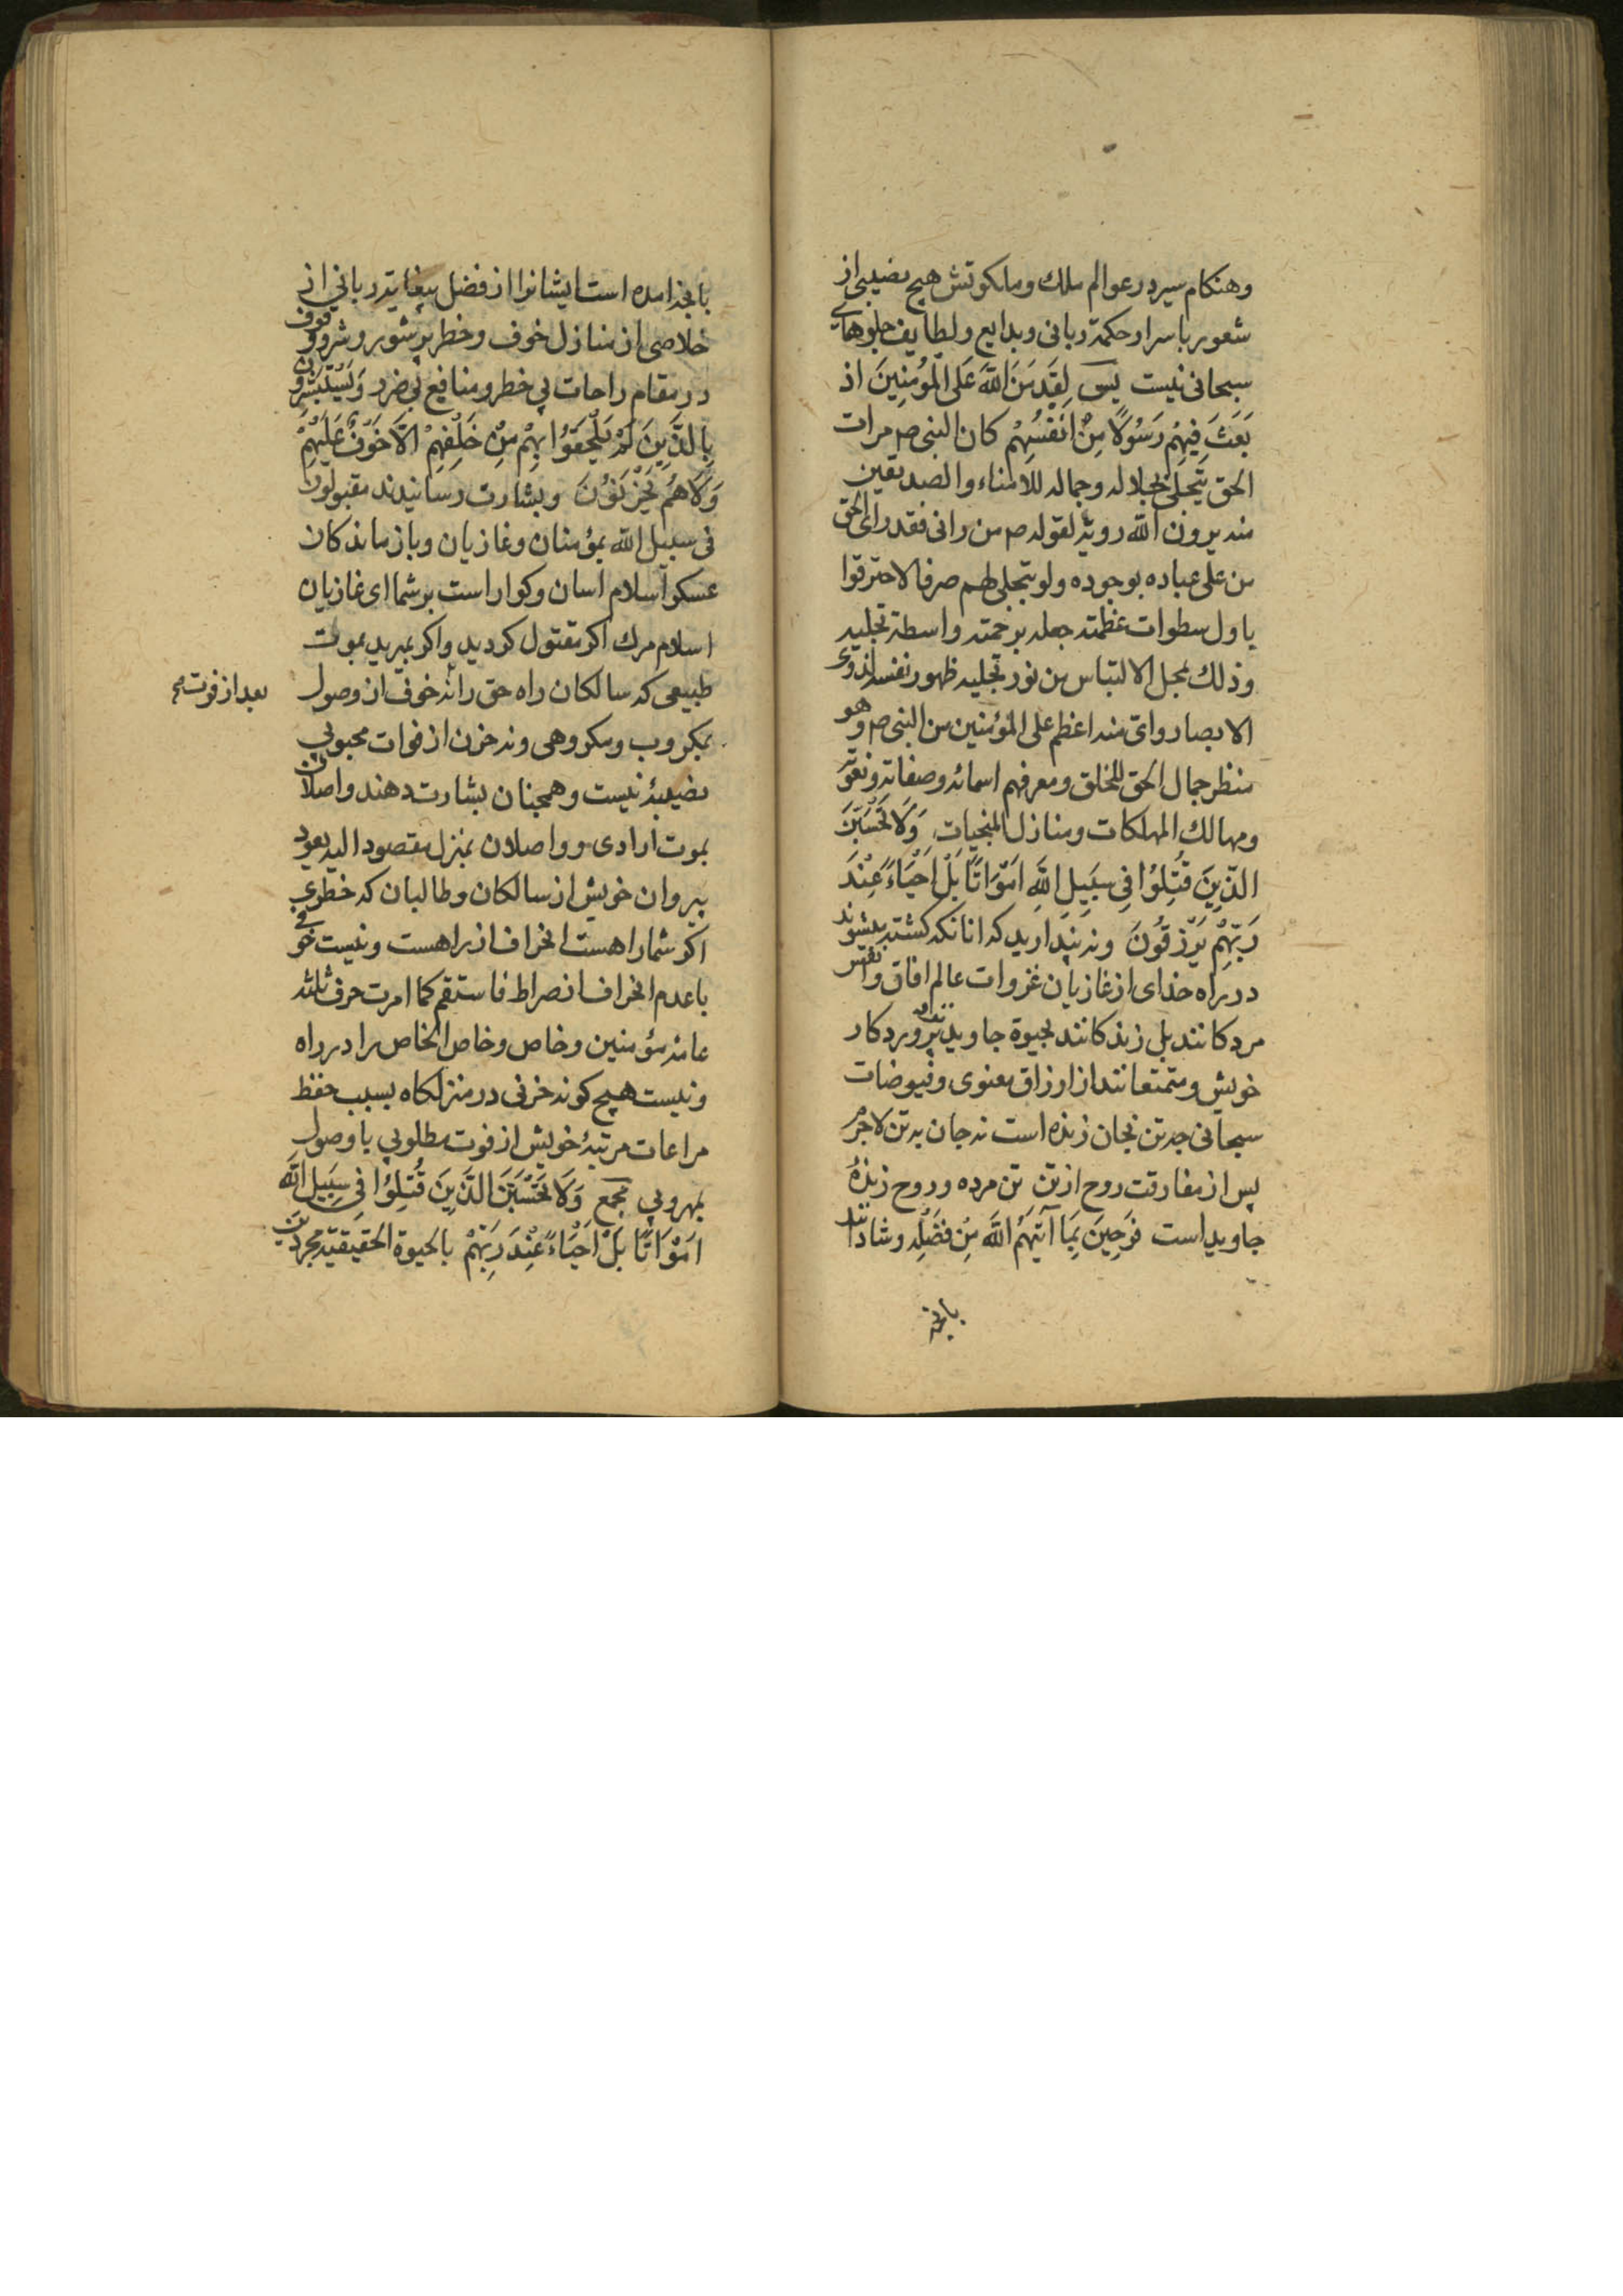 وهنکام سیر در عوالم ملك وملکوتش هیچ نصیبی از
شعور باسرار حکمة ربانی وبدایع ولطایف جلوهای
سبحانی نیست پس لَقَدْ مَنَّ اللّٰهَ عَلَی الْمُؤْمِنِینَ اذ
بَعَثَ فِیهِمْ رَسُولًا مِنْ اَنْفُسِهِمْ کان النبی ص مرات
الحق یتجلی بجلاله وجماله للامناء والصدیقین
منه یرون اللّٰه رویة لقوله ص من رانی فقد رای الحق
من علی عباده بوجوده ولو یتجلی لهم صرفا لاحترقوا
باول سطوات عظمته جعله برحمته واسطة تجلیه
وذلك لمحل الالتباس من نور تجلیه ظهور نفسه لذوی
الابصار وای منه اعظم علی المؤمنین من النبی ص وهو
منظر جمال الحق للخلق ومعرفهم اسمائه وصفاته ونعوته
ومهالك المهلکات ومنازل المنجیات وَلَا تَحْسَبَنَّ
الَّذِینَ قُتِلُوْا فِی سَبِیلِ اللّٰهِ اَمْوَاتًا بَلْ اَحْیَاءً عِنْدَ
رَبِّهِمْ یُرْزَقُونَ ونه پندارید که انانکه کشته میشوند
در راه خدای از غازیان غزوات عالم افاق وانفس
مردکانند بلی زندکانند بحیوة جاوید نزد پروردکار
خویش ومتمتعانند از ارزاق معنوی وفیوضات
سبحانی چه تن بجان زنده است نه جان به تن لاجرم
پس از مفارقت روح از تن تن مرده وروح زندهٔ
جاوید است فَرِحِینَ بِمَا آتٰیهُمُ اللّٰهَ مِنْ فَضْلِهِ وشادانند
بانچه
بانچه امده است ایشانرا از فضل بیغایت ربانی از
خلاصی از منازل خوف وخطر پر شور وشر ووقوف
در مقام راحات بی خطر ومنافع بی ضرر وَیَسْتَبْشِرُونَ
بِالَّذِینَ لَمْ یَلْحَقُوْا بِهِمْ مِنْ خَلْفِهِمْ اَلَّا خَوْفٌ عَلَیْهِمْ
وَلَا هُمْ یَحْزَنُوْنَ وبشارت رسانیدند مقبولان
فی سبیل اللّٰه بمؤمنان وغازیان وبازماندکان
عسکر اسلام اسان وکوار است بر شما ای غازیان
اسلام مرك اکر مقتول کردید واکر بمیرید بموت
طبیعی که سالکان راه حق را نه خوفی از وصول
بعد از فوت
بمکروب ومکروهی ونه حزن از فوات محبوبی
نصیبهٔ نیست وهمچنان بشارت دهند واصلان
بموت ارادی و واصلان بمنزل مقصود الیه یعود
پیروان خویش از سالکان وطالبان که خطری
اکر شما را هست انحراف از راهست ونیست خوفی
با عدم انحراف از صراط فاستقم کما امرت حرف ثلثه
عامه مؤمنین وخاص وخاص الخاص را در راه
ونیست هیچ کونه حزنی در منزلکاه بسبب حفظ
مراعات مرتبهٔ خویش از فوت مطلوبی با وصول
بمهروبی مجمع وَلَا تَحْسَبَنَّ الَّذِینَ قُتِلُوْا فِی سَبِیلِ اللّٰه
اَمْوَاتًا بَلْ اَحْیَاءً عِنْدَ رَبِّهِمْ بالحیوة الحقیقیّه مجردین